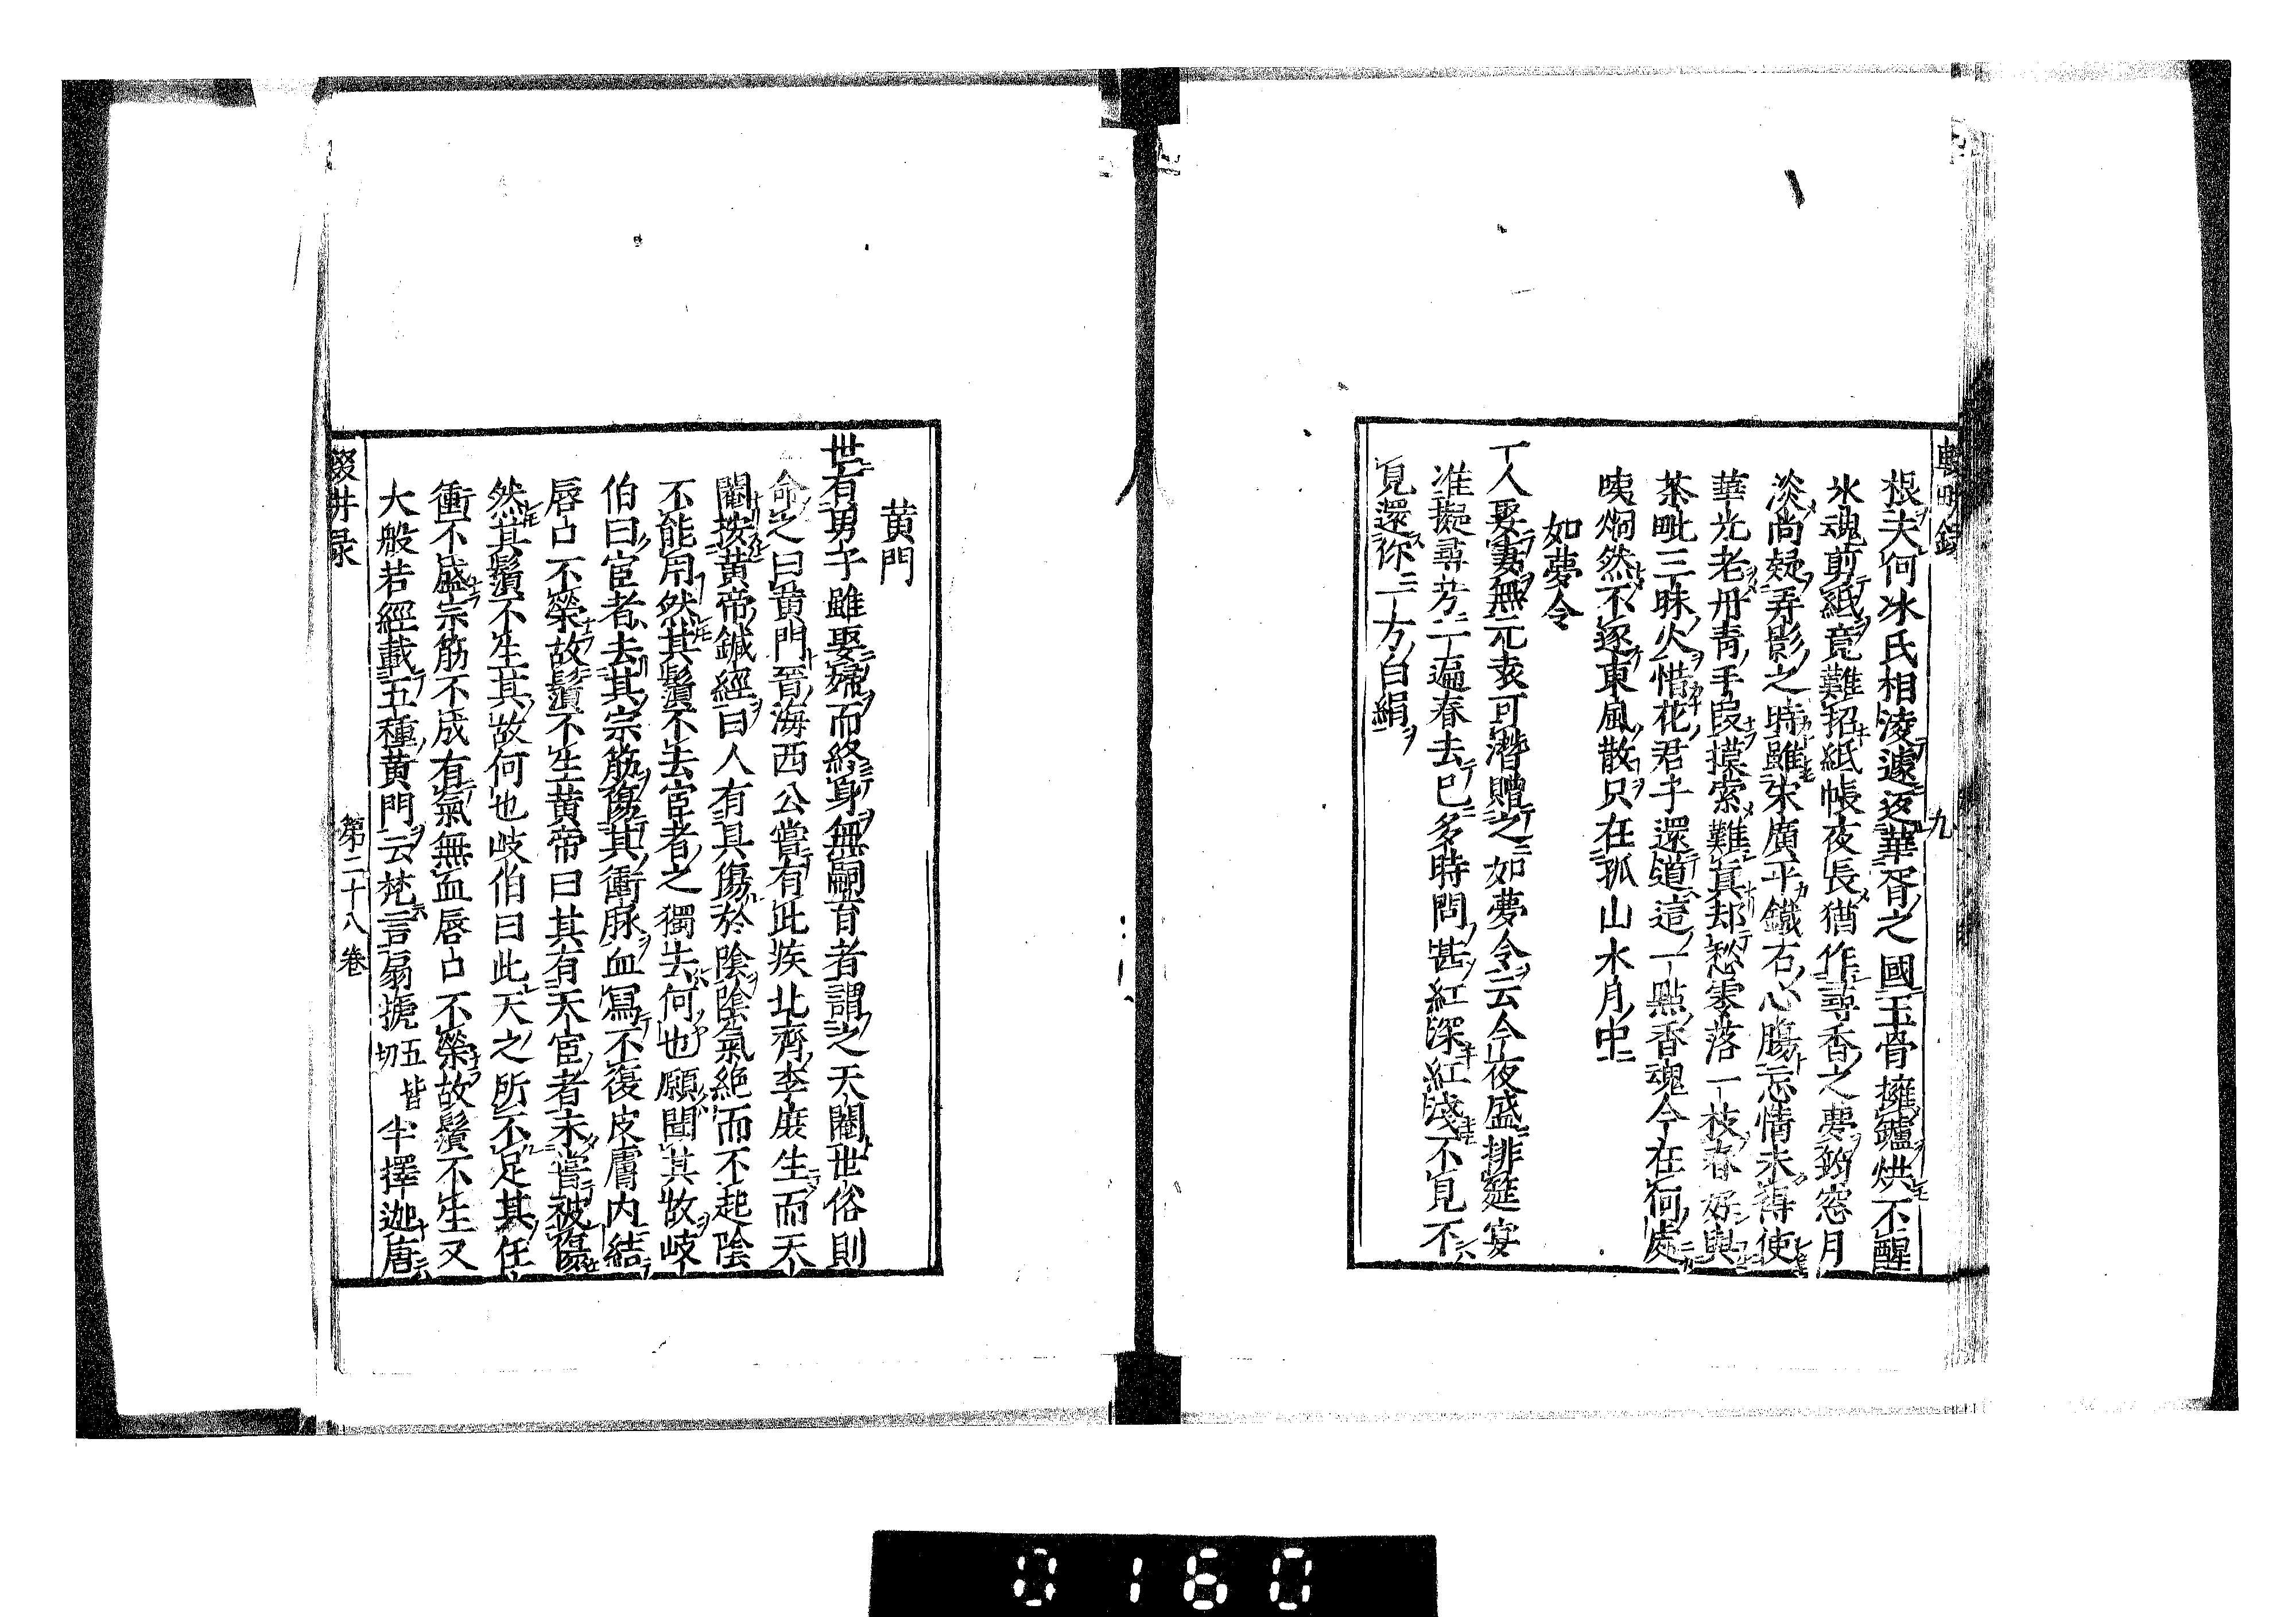 輟畊錄 九
根夫何冰氏相淩遽返華胥之國玉骨擁鑪烘不醒
氷魂剪紙竟難招紙帳夜長猶作尋香之夢窓月
淡尚疑弄影之時雖宋廣平鐵石心膓忘情未得使
華光老丹青手段摸索難真却愁零落一枝春好與
茶毗三昧火惜花君子還道這一點香魂今在何處
咦炯然不逐東風散只在孤山水月中
如夢令
一人娶妻無元袁可潛贈之如夢令云今夜盛排筵宴
准擬尋芳一遍春去已多時問甚紅深紅淺不見不
見還你一方白絹
黄門
世有男子雖娶婦而終身無嗣育者謂之天閹世俗則
命之曰黄門晉海西公嘗有此疾北齊李庻生而天
閹按黄帝鍼經曰人有具傷於陰陰氣絶而不起陰
不能用然其鬚不去宦者之獨去何也願聞其故岐
伯曰宦者去其宗筋傷其衝脉血冩不復皮膚内結
唇口不榮故鬚不生黄帝曰其有天宦者未嘗被傷
然其鬚不生其故何也岐伯曰此天之所不足其任
衝不盛宗筋不成有氣無血唇口不榮故鬚不生又
大般若經載五種黄門云梵言扇搋五皆切半擇迦唐
輟畊录 第二十八卷
0160